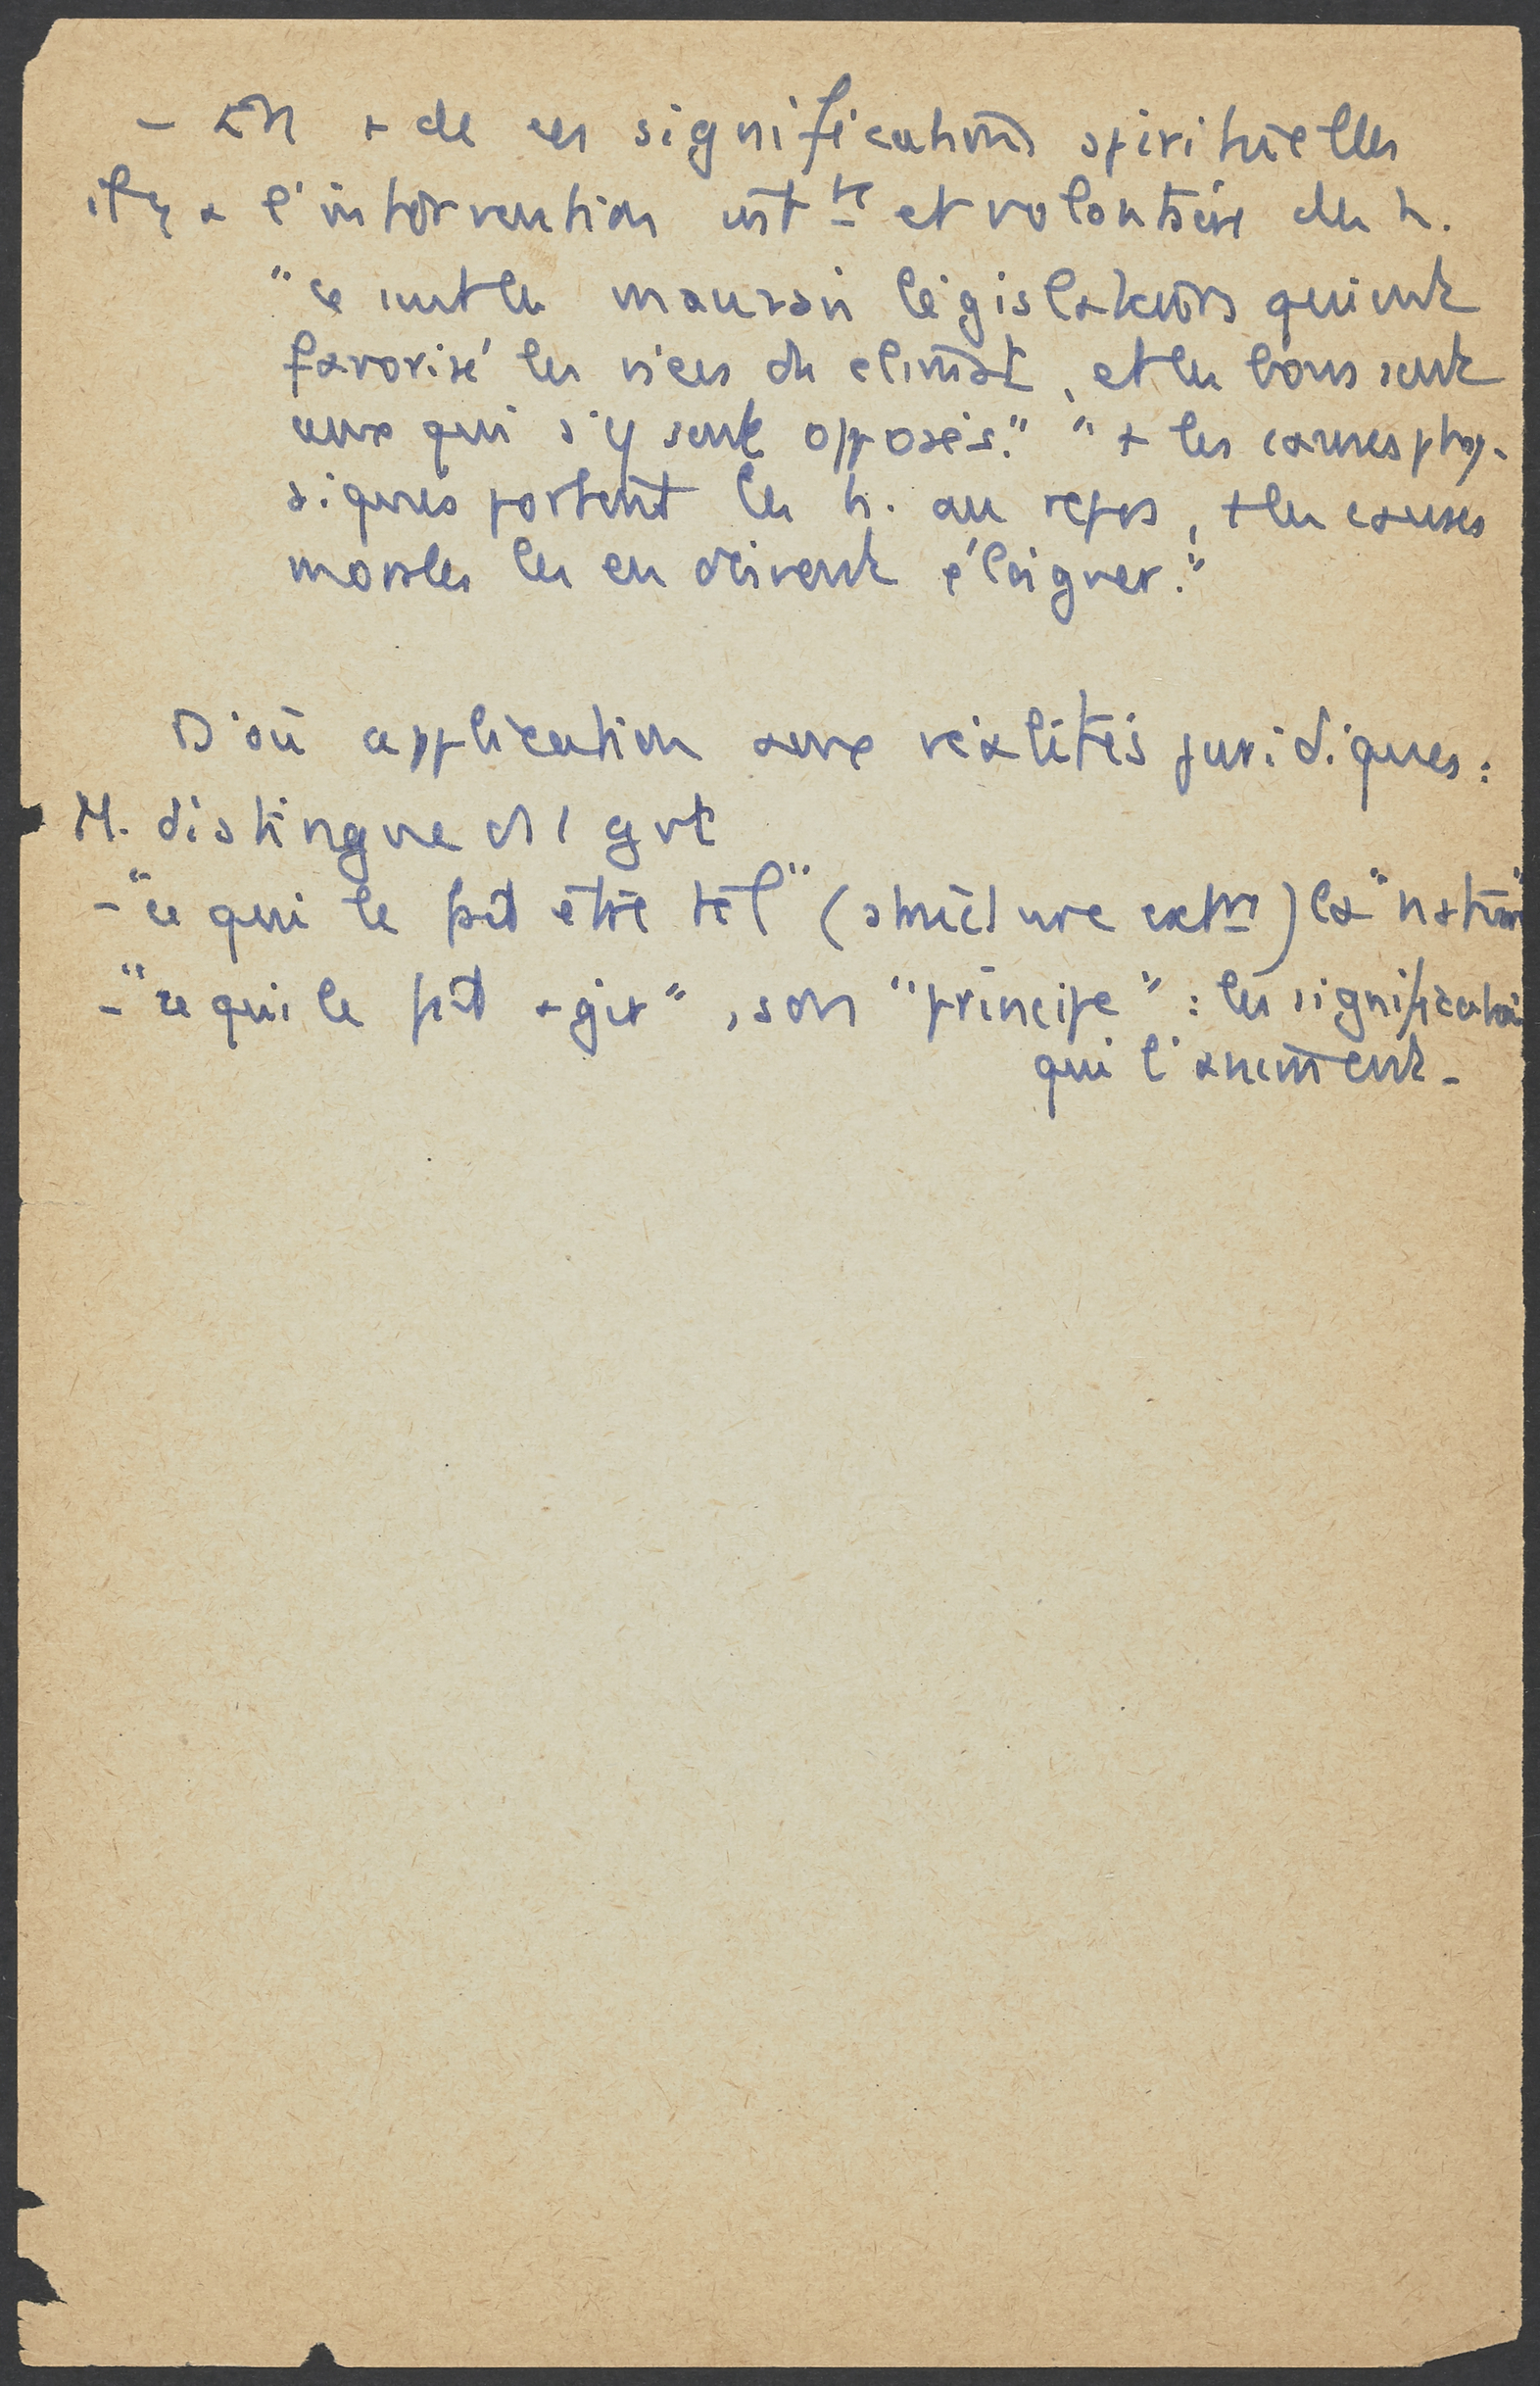 - En + de ces significations spirituelles
il y a l'intervention intte et volontaire des h.
"ce sont les mauvais législateurs qui ont
favorisé les vices du climat, et les bons sont
ceux qui s'y sont opposés." "+ les causes phy-
siques portent les h. au repos, + les causes
morales les en doivent éloigner."
D'où application aux réalités juridiques :
M. distingue ds 1 gvt
- "ce qui le fait être tel" (structure extre) la "nature"
- "ce qui le fait agir", son "principe" : les significations
qui l'animent.